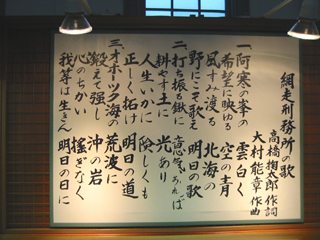 網走刑務所の歌
高橋掬太郎 作詞
大村能章 作曲
一 阿寒の峯の 雲白く
希望に映ゆる 空の青
風すみ渡る 北海の
野にこそ歌え 明日の歌
二 打ち振る鍬に 意気あれば
耕やす土に 光あり
人生いかに 険しくも
正しく拓け 明日の道
三 オホツク海の 荒波に
鍛えて強し 沖の岩
心のちかい 揺ぎなく
我等は生きん 明日の日に